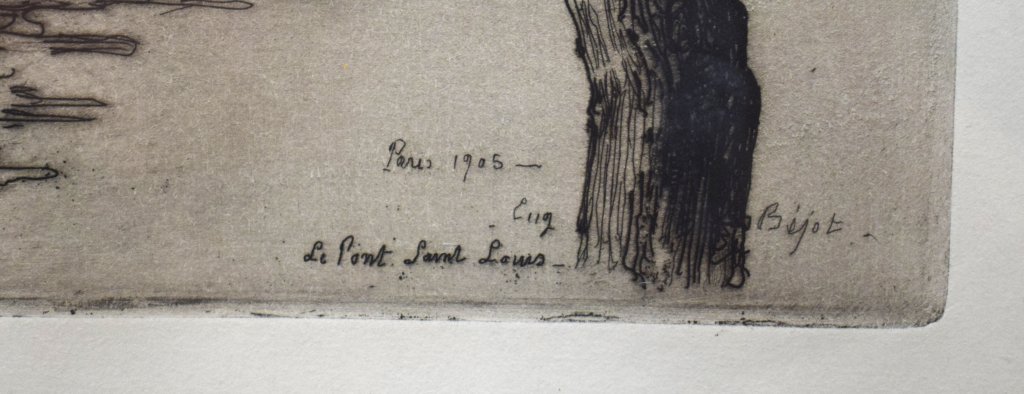 Paris 1905 —
Eug Béjot -
Le Pont Saint Louis -